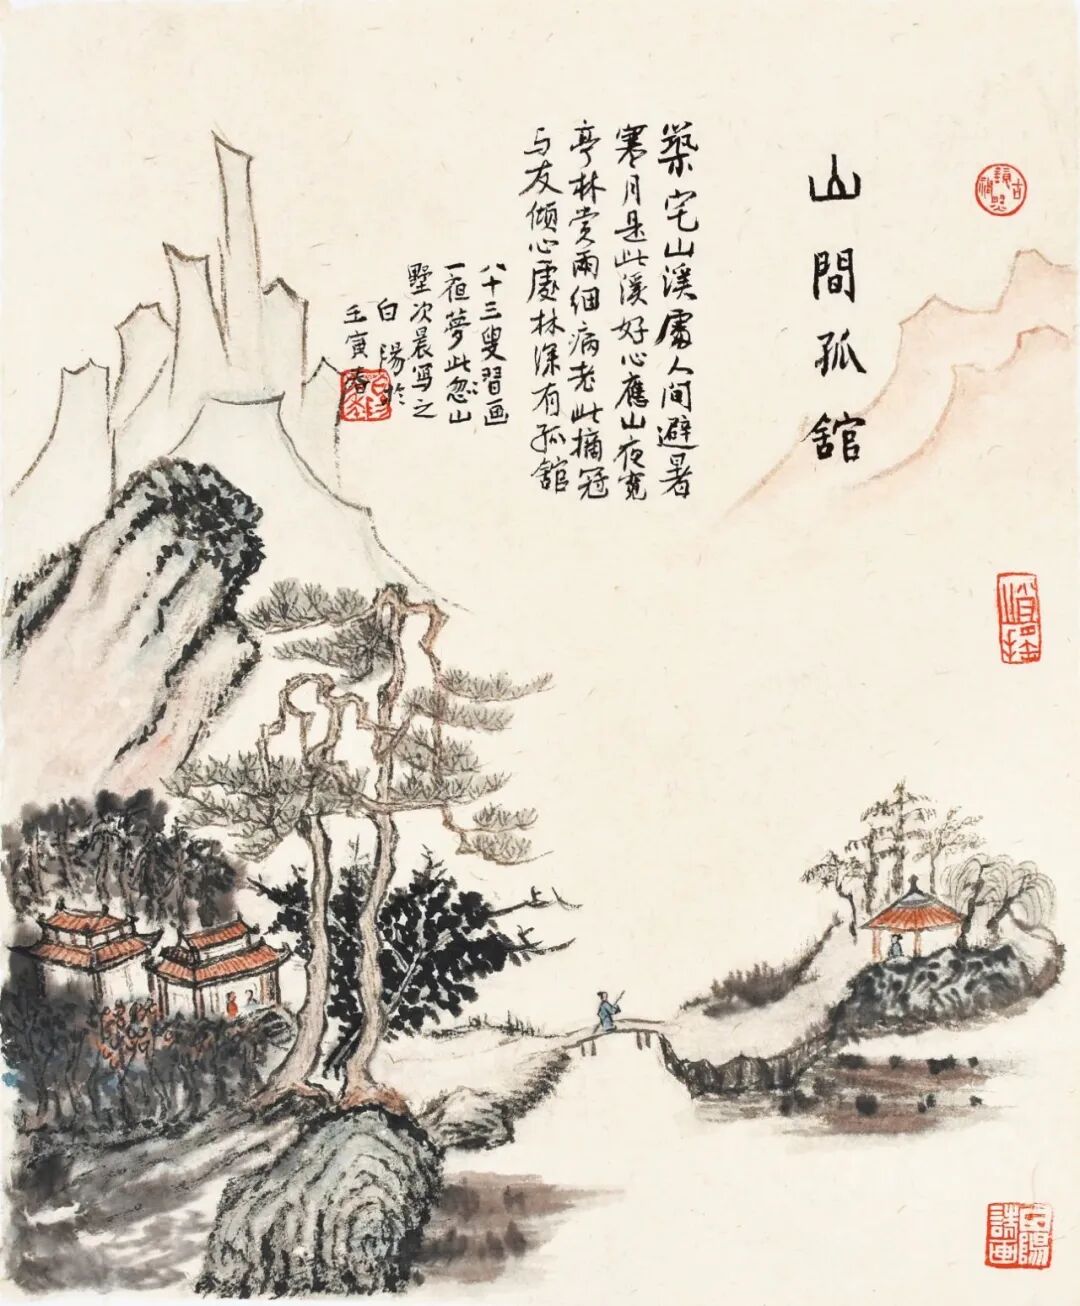 山間孤舘
築宅山溪處人间避暑
寒月是此溪好心應山夜寬
亭林赏雨细病老此摘冠
与友倾心處林深有孤舘
八十三叟習画
一宿夢此忽山
墅次晨写之
白陽於
壬寅春
白陽
詩画